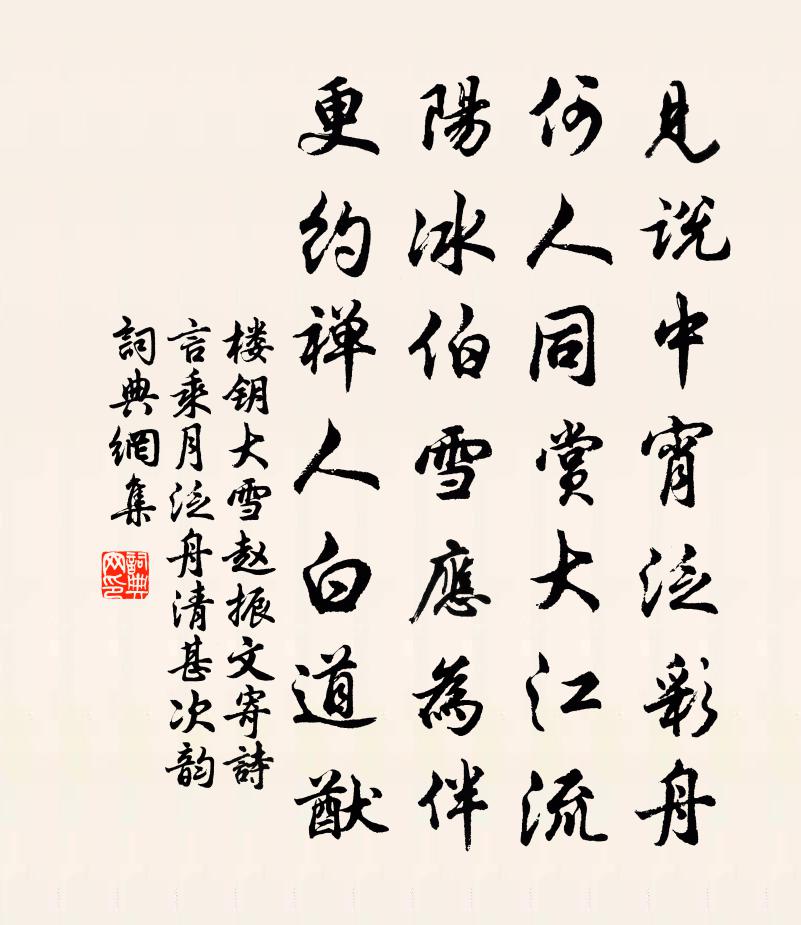 見説中宵泛彩舟
何人同賞大江流
陽冰伯雪應為伴
更約禅人白道猷
楼钥大雪赵振文寄詩
言乘月泛舟清甚次韵
詞典網集
詞典
网印